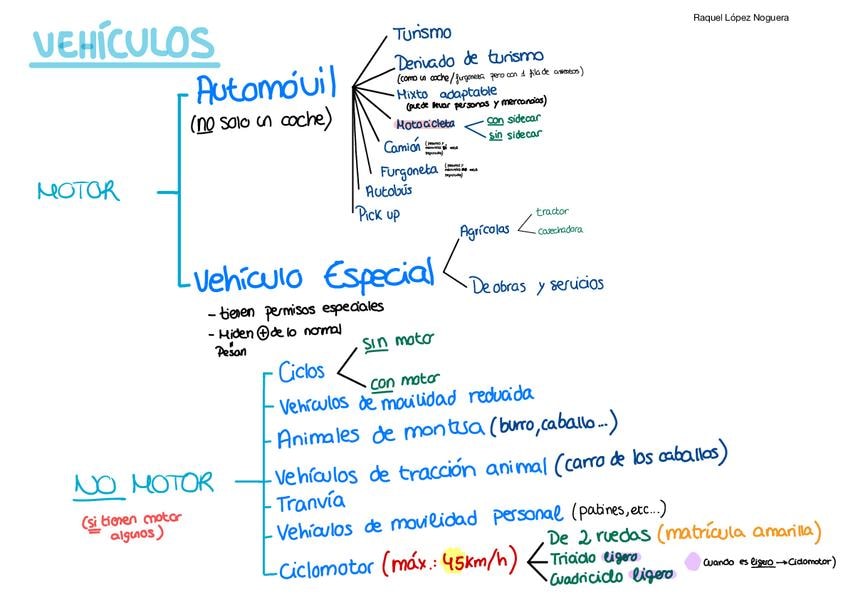 Raquel López Noguera
VEHÍCULOS
Turismo
Derivado de turismo
(como un coche/furgoneta pero con 1 fila de asientos)
Automóvil
(no solo un coche)
Mixto adaptable
(puede llevar personas y mercancías)
Motocicleta
con sidecar
sin sidecar
Camión
Furgoneta
Autobús
Pick up
MOTOR
Agrícolas
tractor
cosechadora
Vehículo Especial
De obras y servicios
- tienen permisos especiales
- Miden + de lo normal
Pesan
Ciclos
sin motor
con motor
Vehículos de movilidad reducida
Animales de montura (burro, caballo...)
Vehículos de tracción animal (carro de los caballos)
NO MOTOR
(si tienen motor
algunos)
Tranvía
Vehículos de movilidad personal (patines, etc...)
Ciclomotor (máx.: 45km/h)
De 2 ruedas (matrícula amarilla)
Triciclo ligero
Cuadriciclo ligero
Cuando es ligero → Ciclomotor)